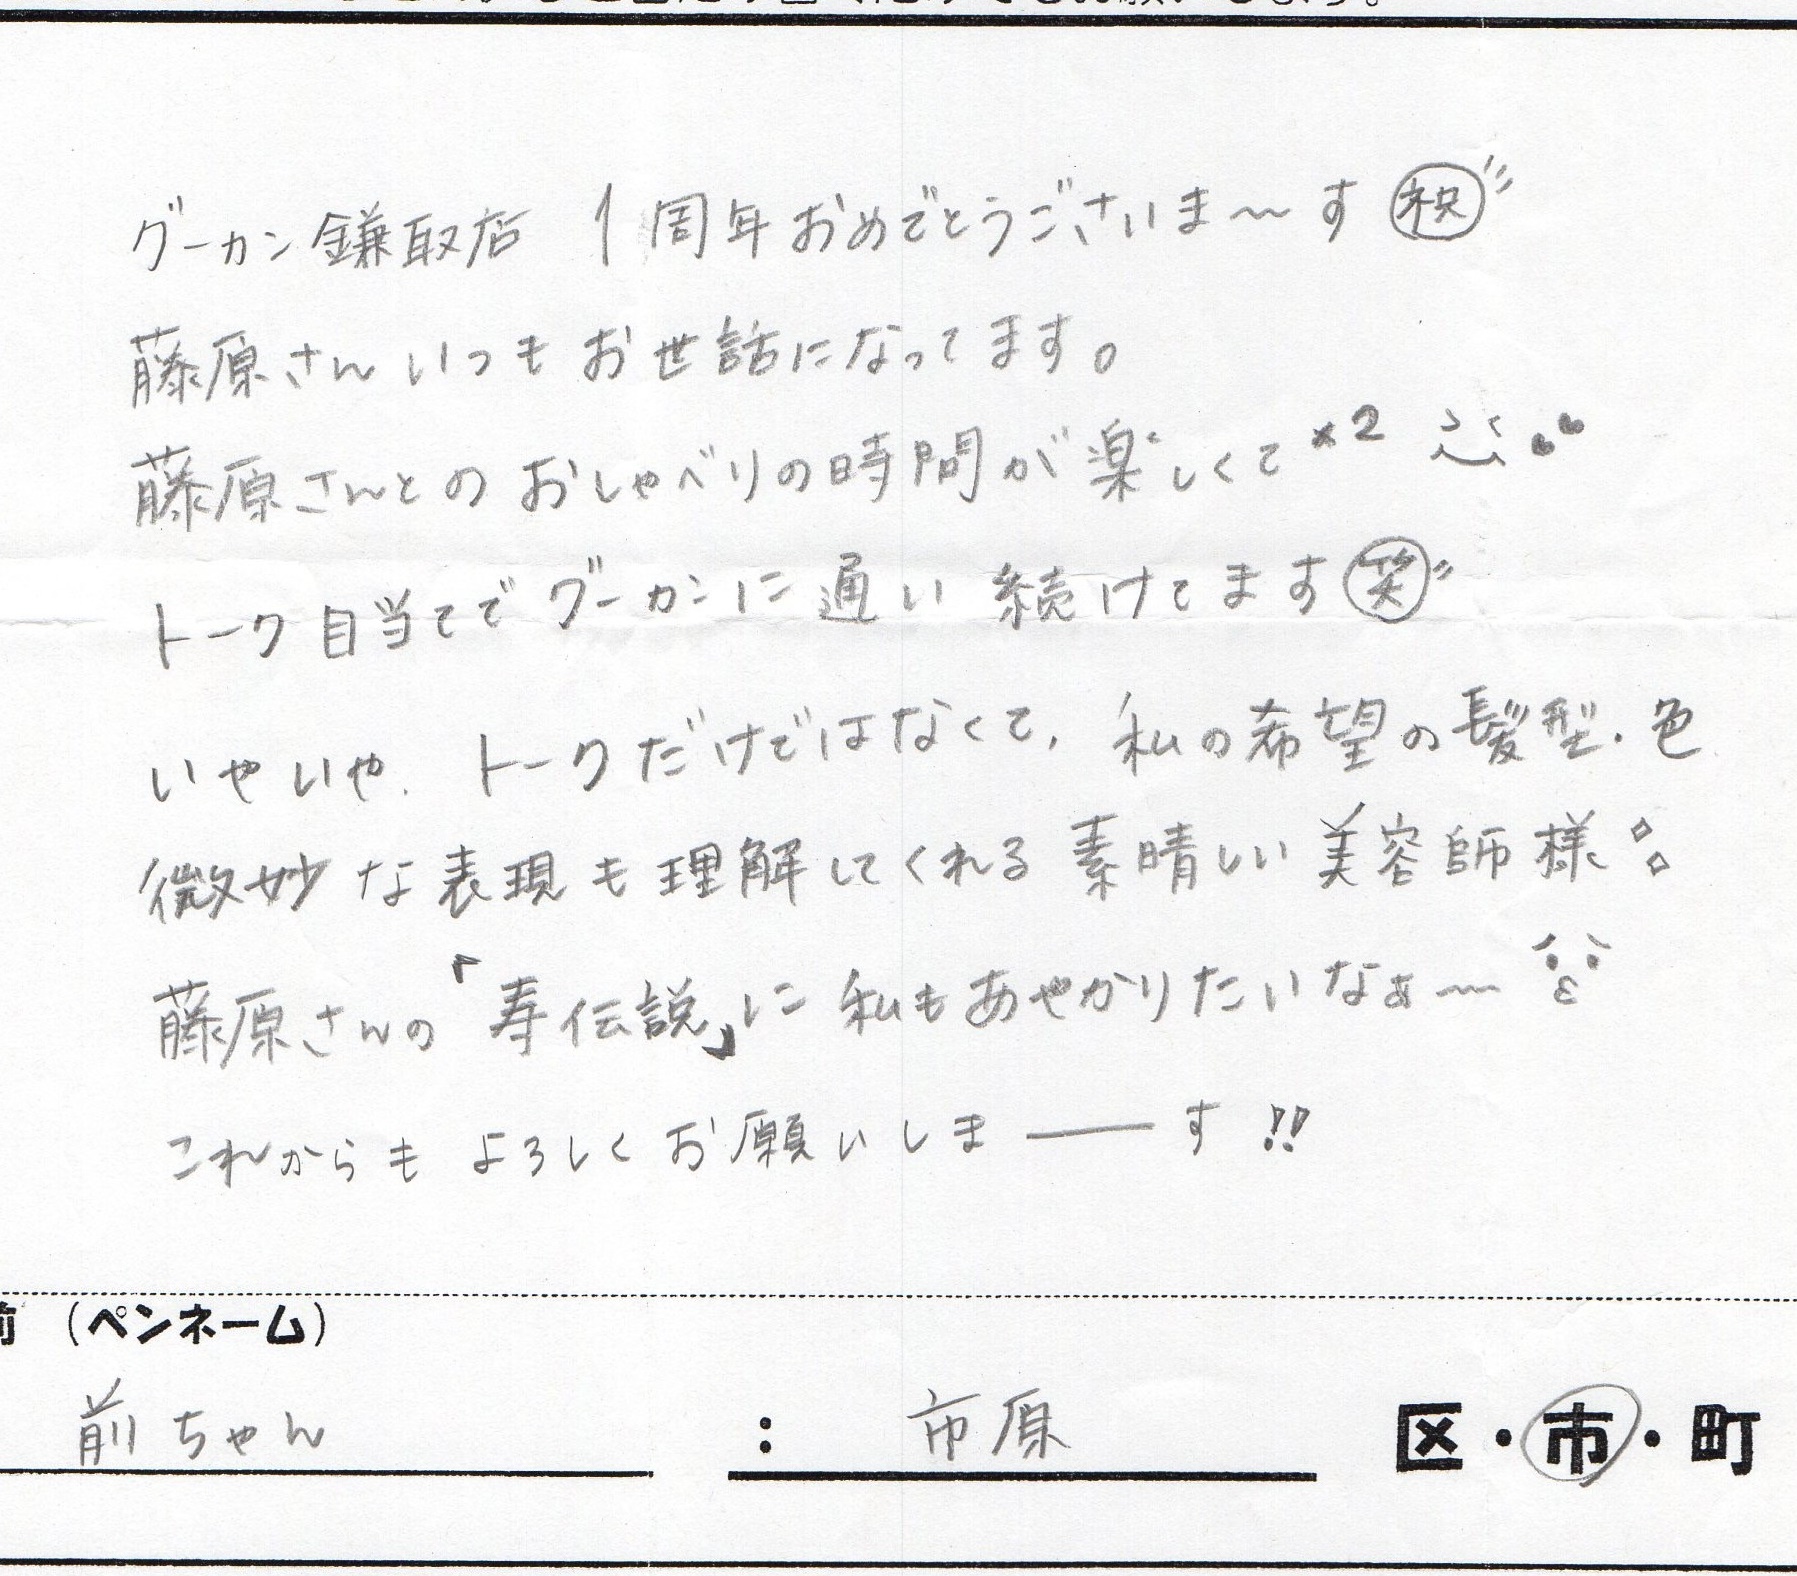 グーカン鎌取店 1周年おめでとうございま〜す㊗"
藤原さんいつもお世話になってます。
藤原さんとのおしゃべりの時間が楽しくて×2
トーク目当てでグーカンに通い続けてます(笑)"
いやいや、トークだけではなくて、私の希望の髪型・色
微妙な表現も理解してくれる素晴しい美容師様
藤原さんの「寿伝説」に私もあやかりたいなぁ〜
これからもよろしくお願いしま――す!!
前 (ペンネーム)
前ちゃん : 市原 区・市・町